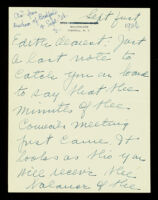 Sept first
Edith dearest: Just
a last note to
catch you on board
to say that the
minutes of the
Council meeting
just came. It
looks as tho you
will receive the
balance of the